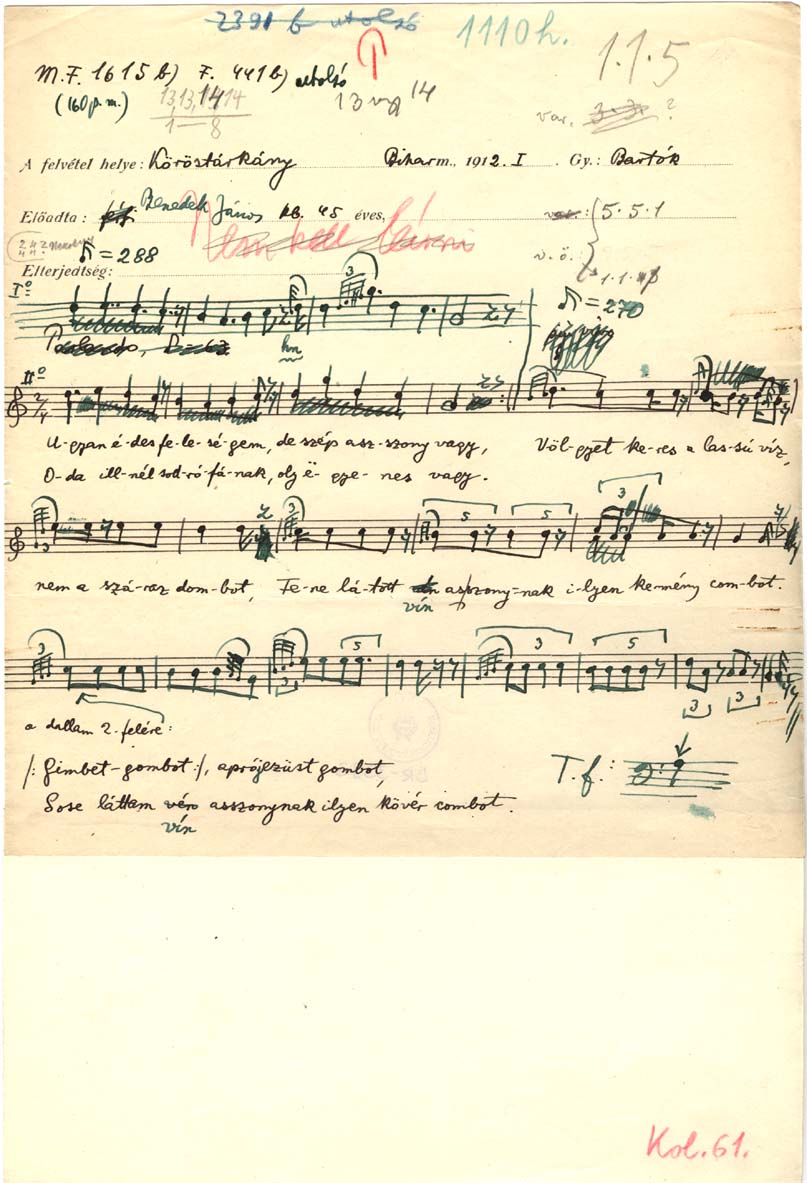 2391 b utolsó
1110h.
1.1.5
M.F. 1615 b) F. 441 b) utolsó
(160 p.m.)
13,13,14,14
1—8
var. 3.3. ?
A felvétel helye: Köröstárkány Biharm., 1912. I. Gy.: Bartók
Előadta: férj Benedek János kb. 45 éves, var.: 5.5.1
= 288
Nem kell
v. ö.
Elterjedtség:
1.1.
3
Iº
= 270
Parlando,
IIº
2/4
U-gyan é-des fe-le-sé-gem, de szép asz-szony vagy, Völ-gyet ke-res a las-sú víz,
O-da ill-nél sod-ró-fá-nak, oly ë-gye-nes vagy.
3 3 5 5 3
nem a szá-raz dom-bot, Fe-ne lá-tott asszony-nak i-lyen ke-mény com-bot.
vín
3 3 5 3 5 3 3
a dallam 2. felére:
/: Gimbet-gombot :/, aprójezüst gombot,
T.f.:
Sose láttam véro asszonynak ilyen kövér combot.
vín
Kol. 61.